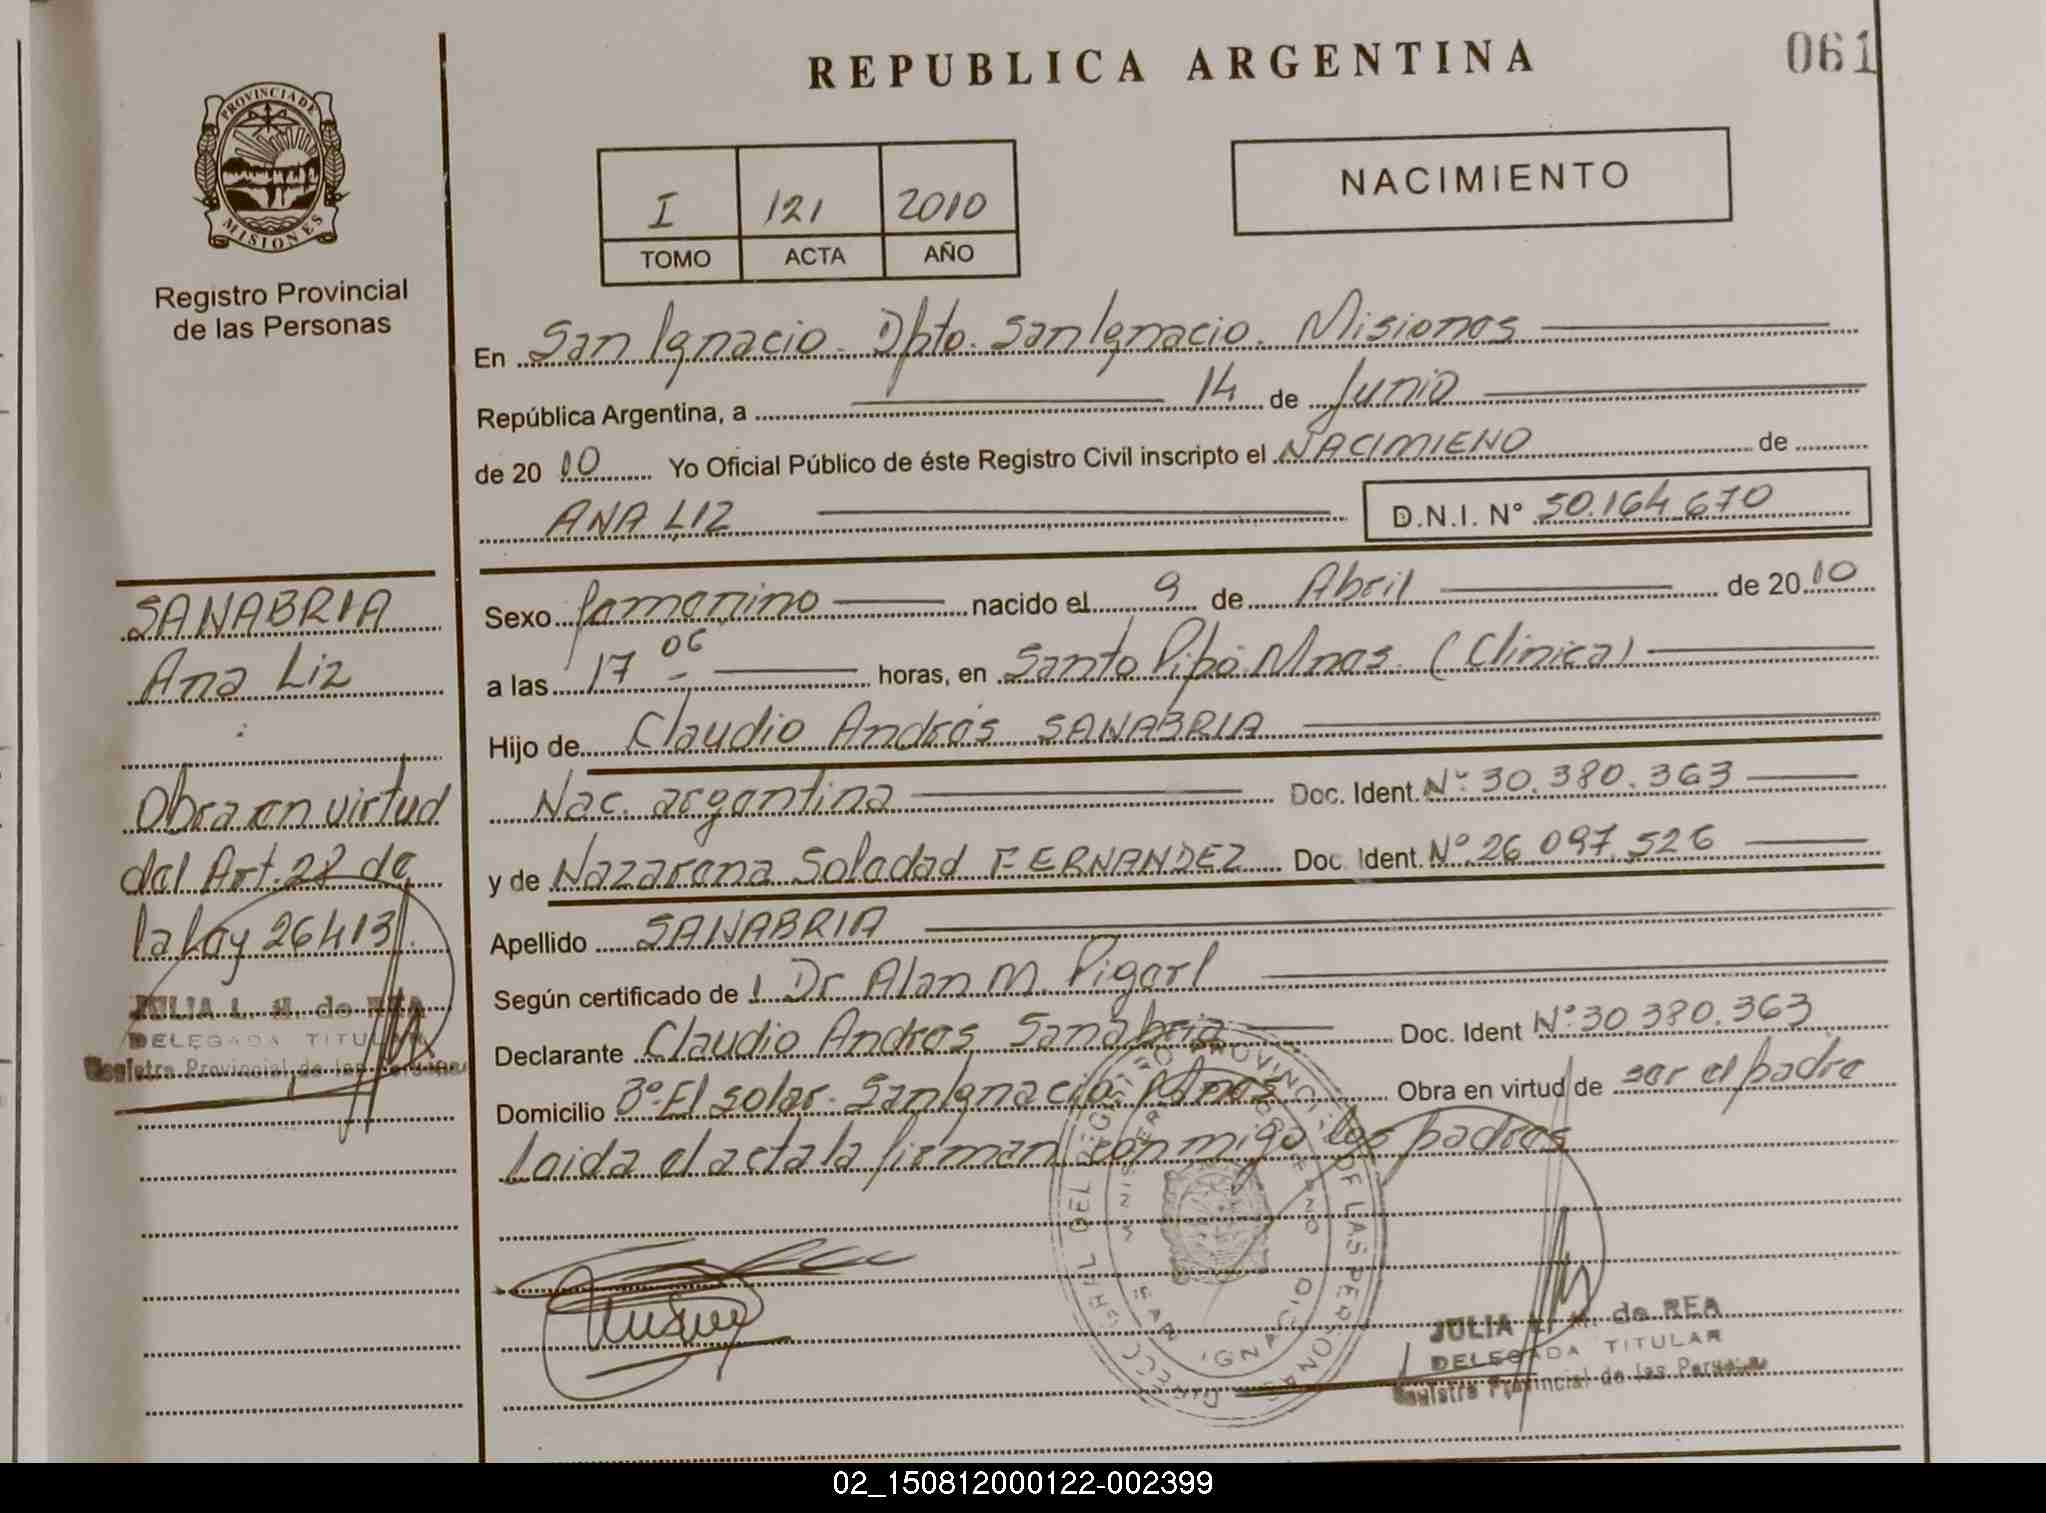 REPUBLICA ARGENTINA
061
PROVINCIA DE
MISIONES
Registro Provincial
de las Personas
I 121 2010
TOMO ACTA AÑO
NACIMIENTO
En San Ignacio. Dpto. San Ignacio. Misiones
República Argentina, a 14 de Junio
de 2010 Yo Oficial Público de éste Registro Civil inscripto el NACIMIENO de
ANA LIZ D.N.I. N° 50.164.670
SANABRIA
Ana Liz
Obra en virtud
del Art. 28 de
la Ley 26413
JULIA L. H. de REA
DELEGADA TITULAR
Registro Provincial de las Personas
Sexo femenino nacido el 9 de Abril de 2010
a las 17 06 horas, en Santo Pipó. Mnes. (Clinica)
Hijo de Claudio Andrés SANABRIA
Nac. argentina Doc. Ident. N° 30.380.363
y de Nazarena Soledad FERNANDEZ Doc. Ident. N° 26.097.526
Apellido SANABRIA
Según certificado de Dr Alan M. Pigerl
Declarante Claudio Andres Sanabria Doc. Ident N° 30.380.363
Domicilio B° El solar. San Ignacio. Mnes Obra en virtud de ser el padre
Leida el acta la firman conmigo los padres
REGISTRO PROVINCIAL DE LAS PERSONAS
SAN IGNACIO
JULIA L. H. de REA
DELEGADA TITULAR
Registro Provincial de las Personas
02_150812000122-002399